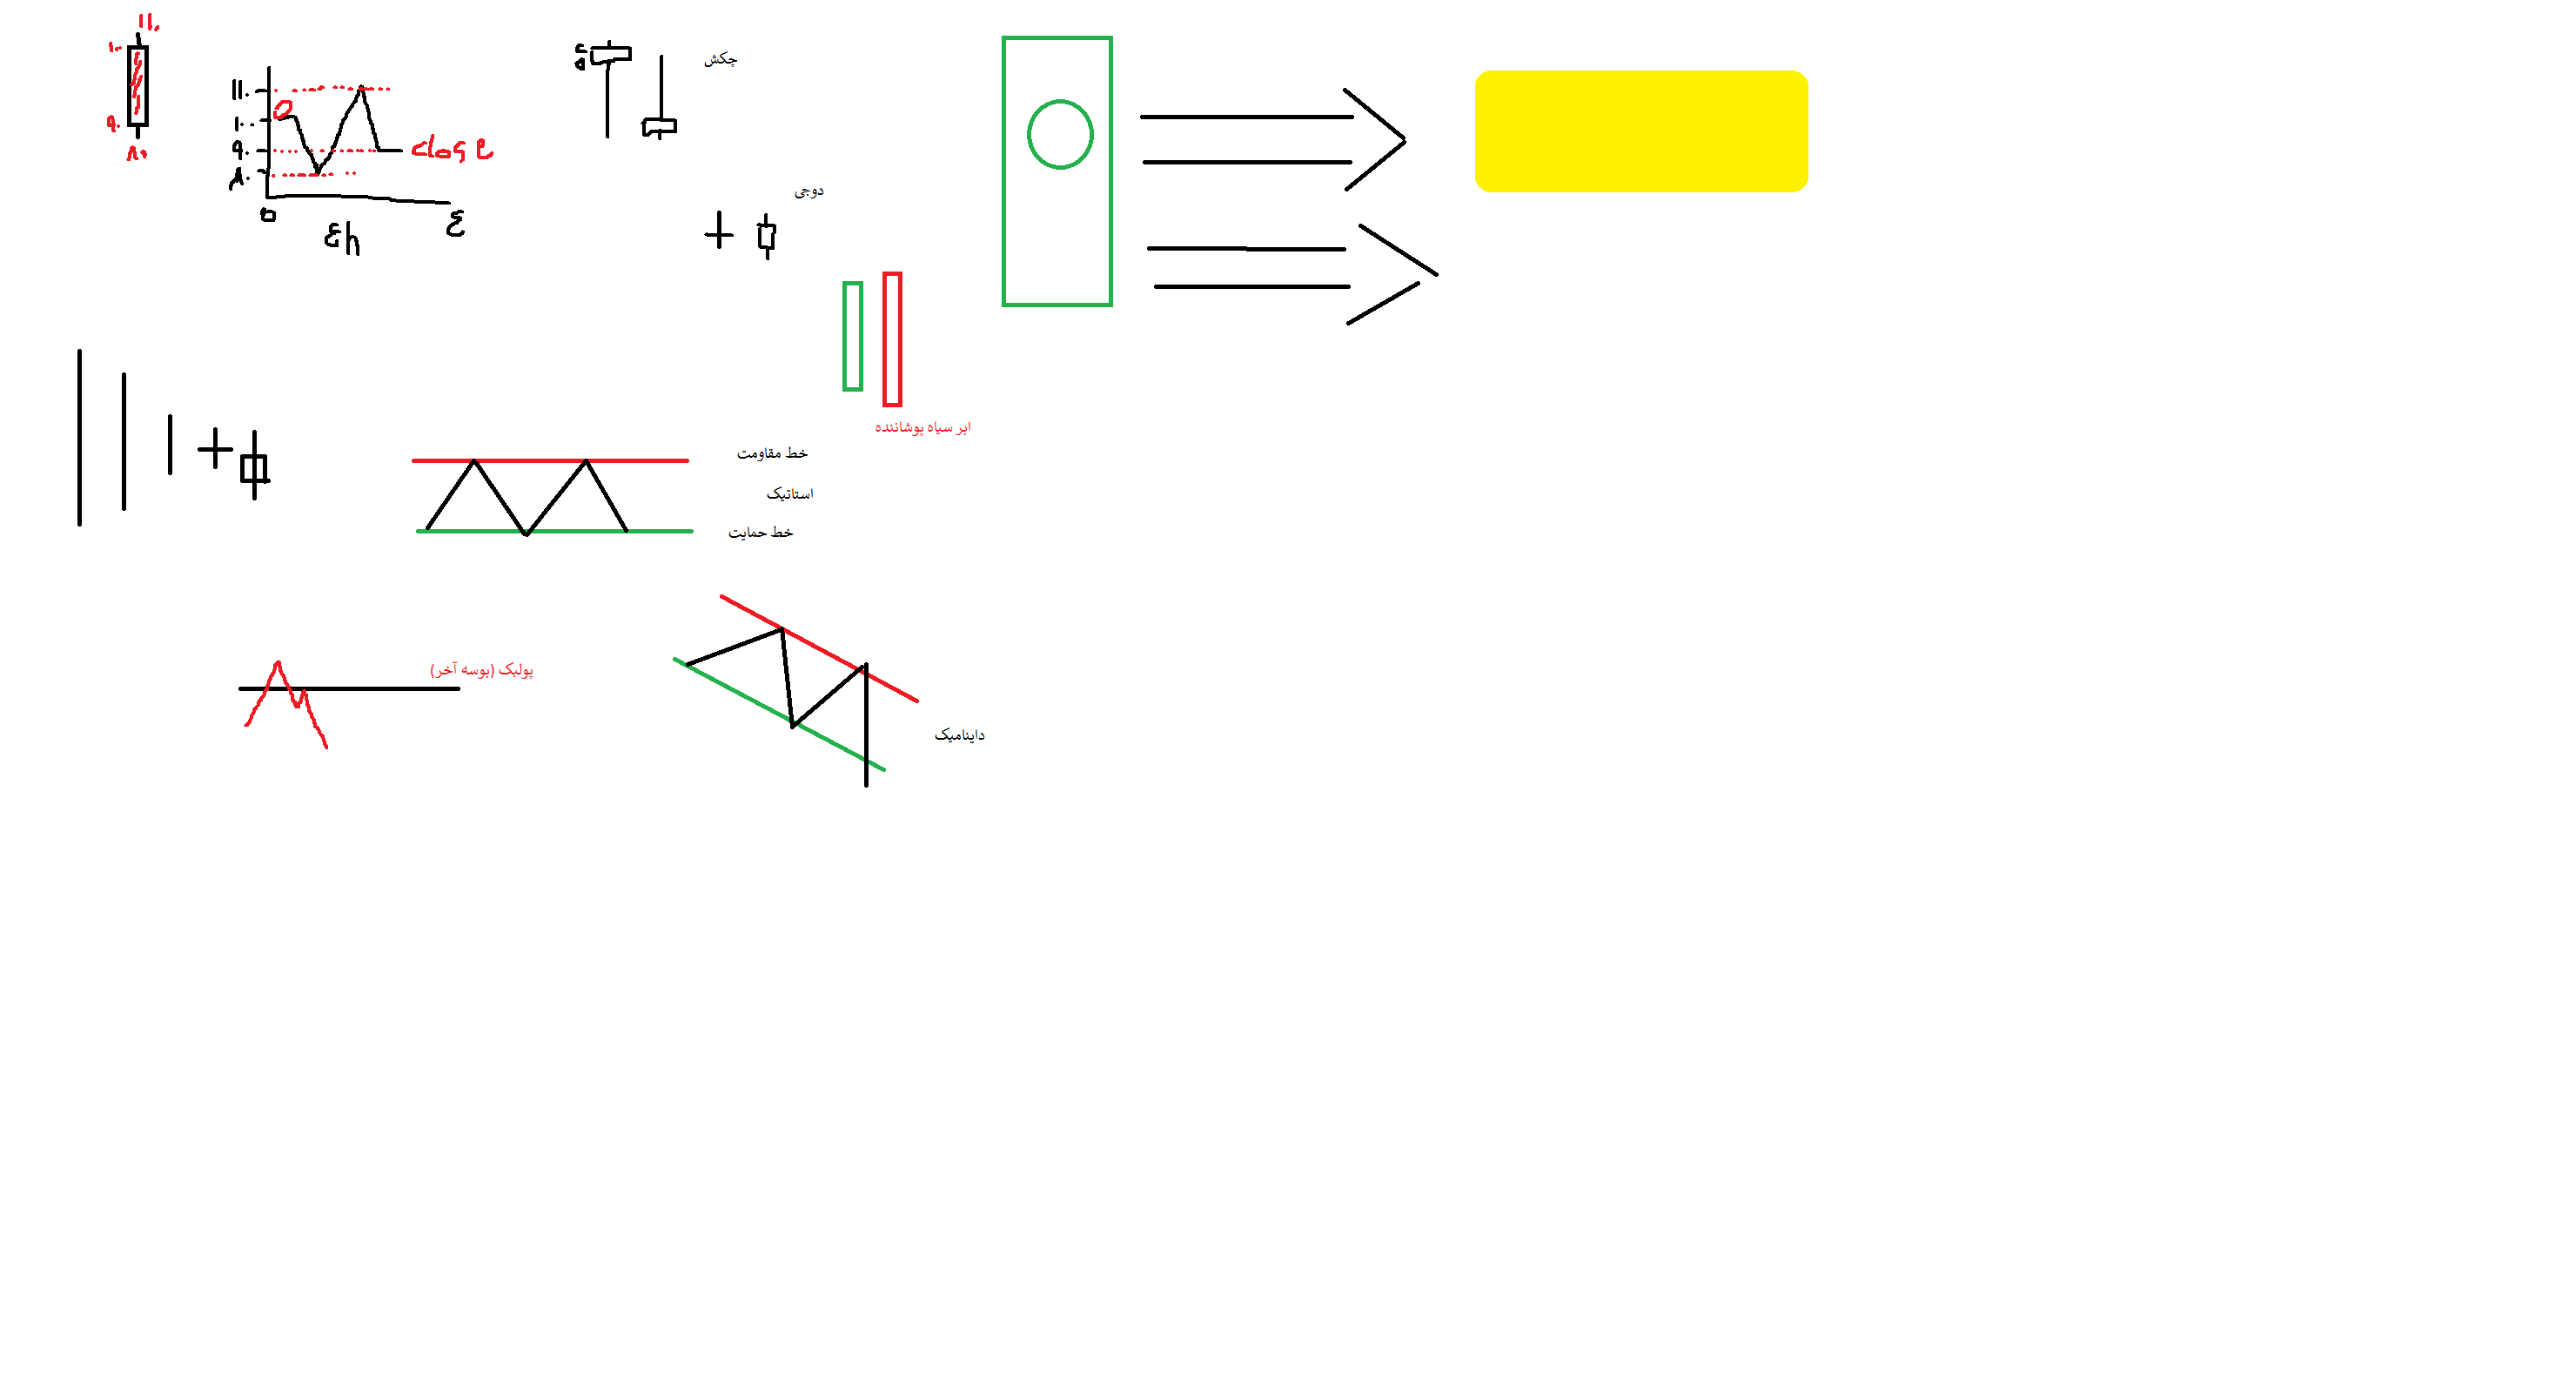 ۱۱۰
۱۰
۹۰
۸۰
۱۱۰
۱۰۰
۹۰
۸۰
close
۴h
۴
چکش
دوجی
ابر سیاه پوشاننده
خط مقاومت
استاتیک
خط حمایت
پولبک (بوسه آخر)
داینامیک